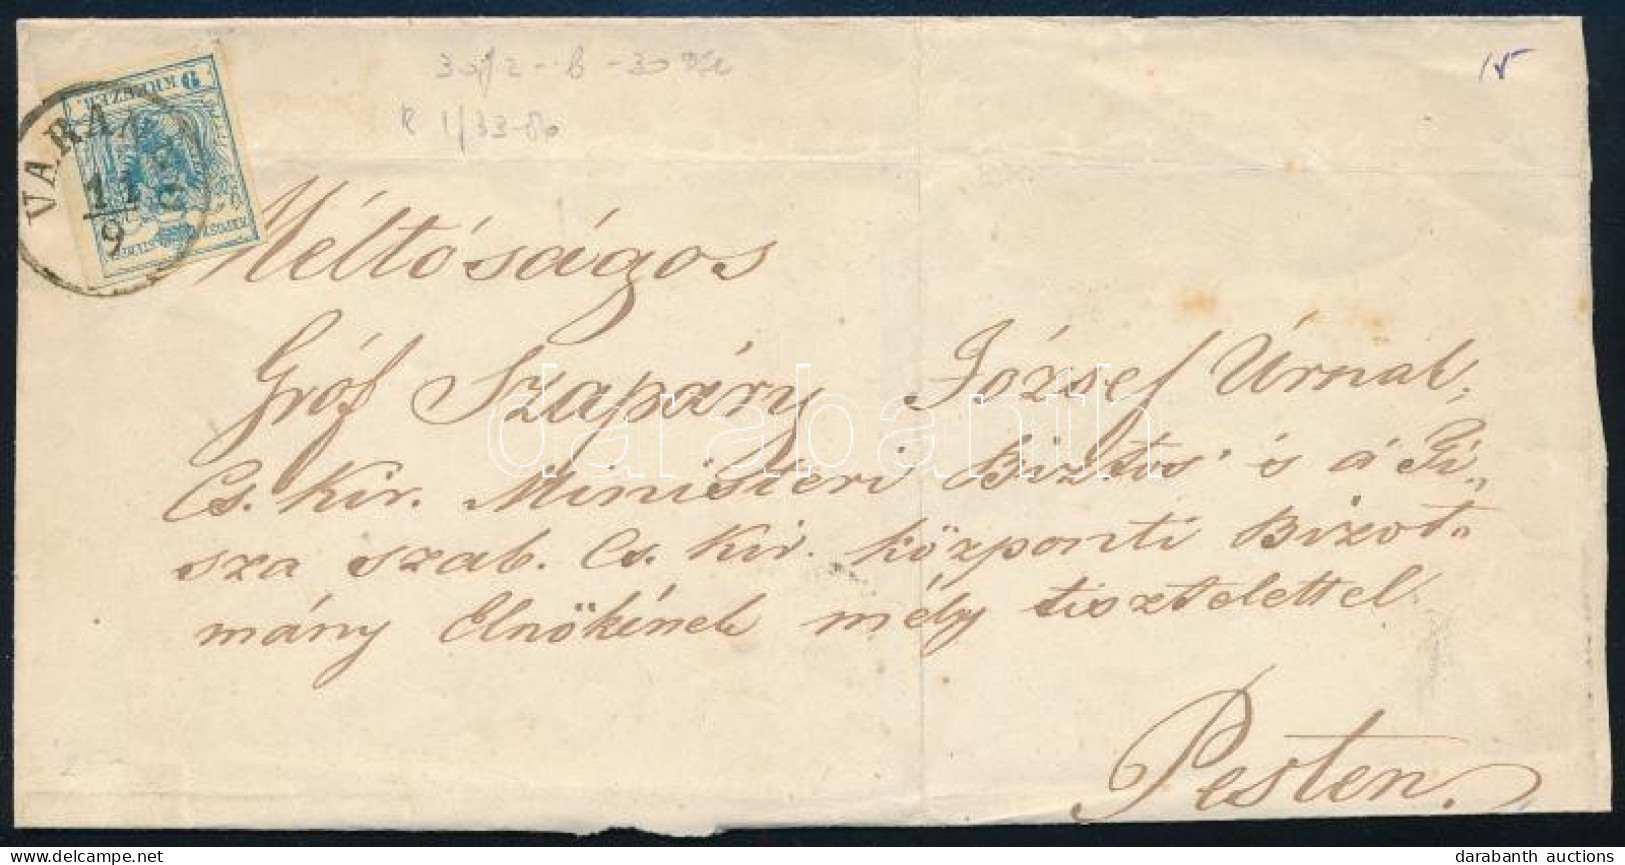 15
9 KREUZER
VARA
11
9
Méltóságos
Gróf Szapáry József Úrnak,
Cs. Kir. Ministeri Biztos és á Ti„
sza szab. Cs. Kir. központi Bizott„
mány Elnökének mély tisztelettel
Pesten.
darabanth
darabanth auctions